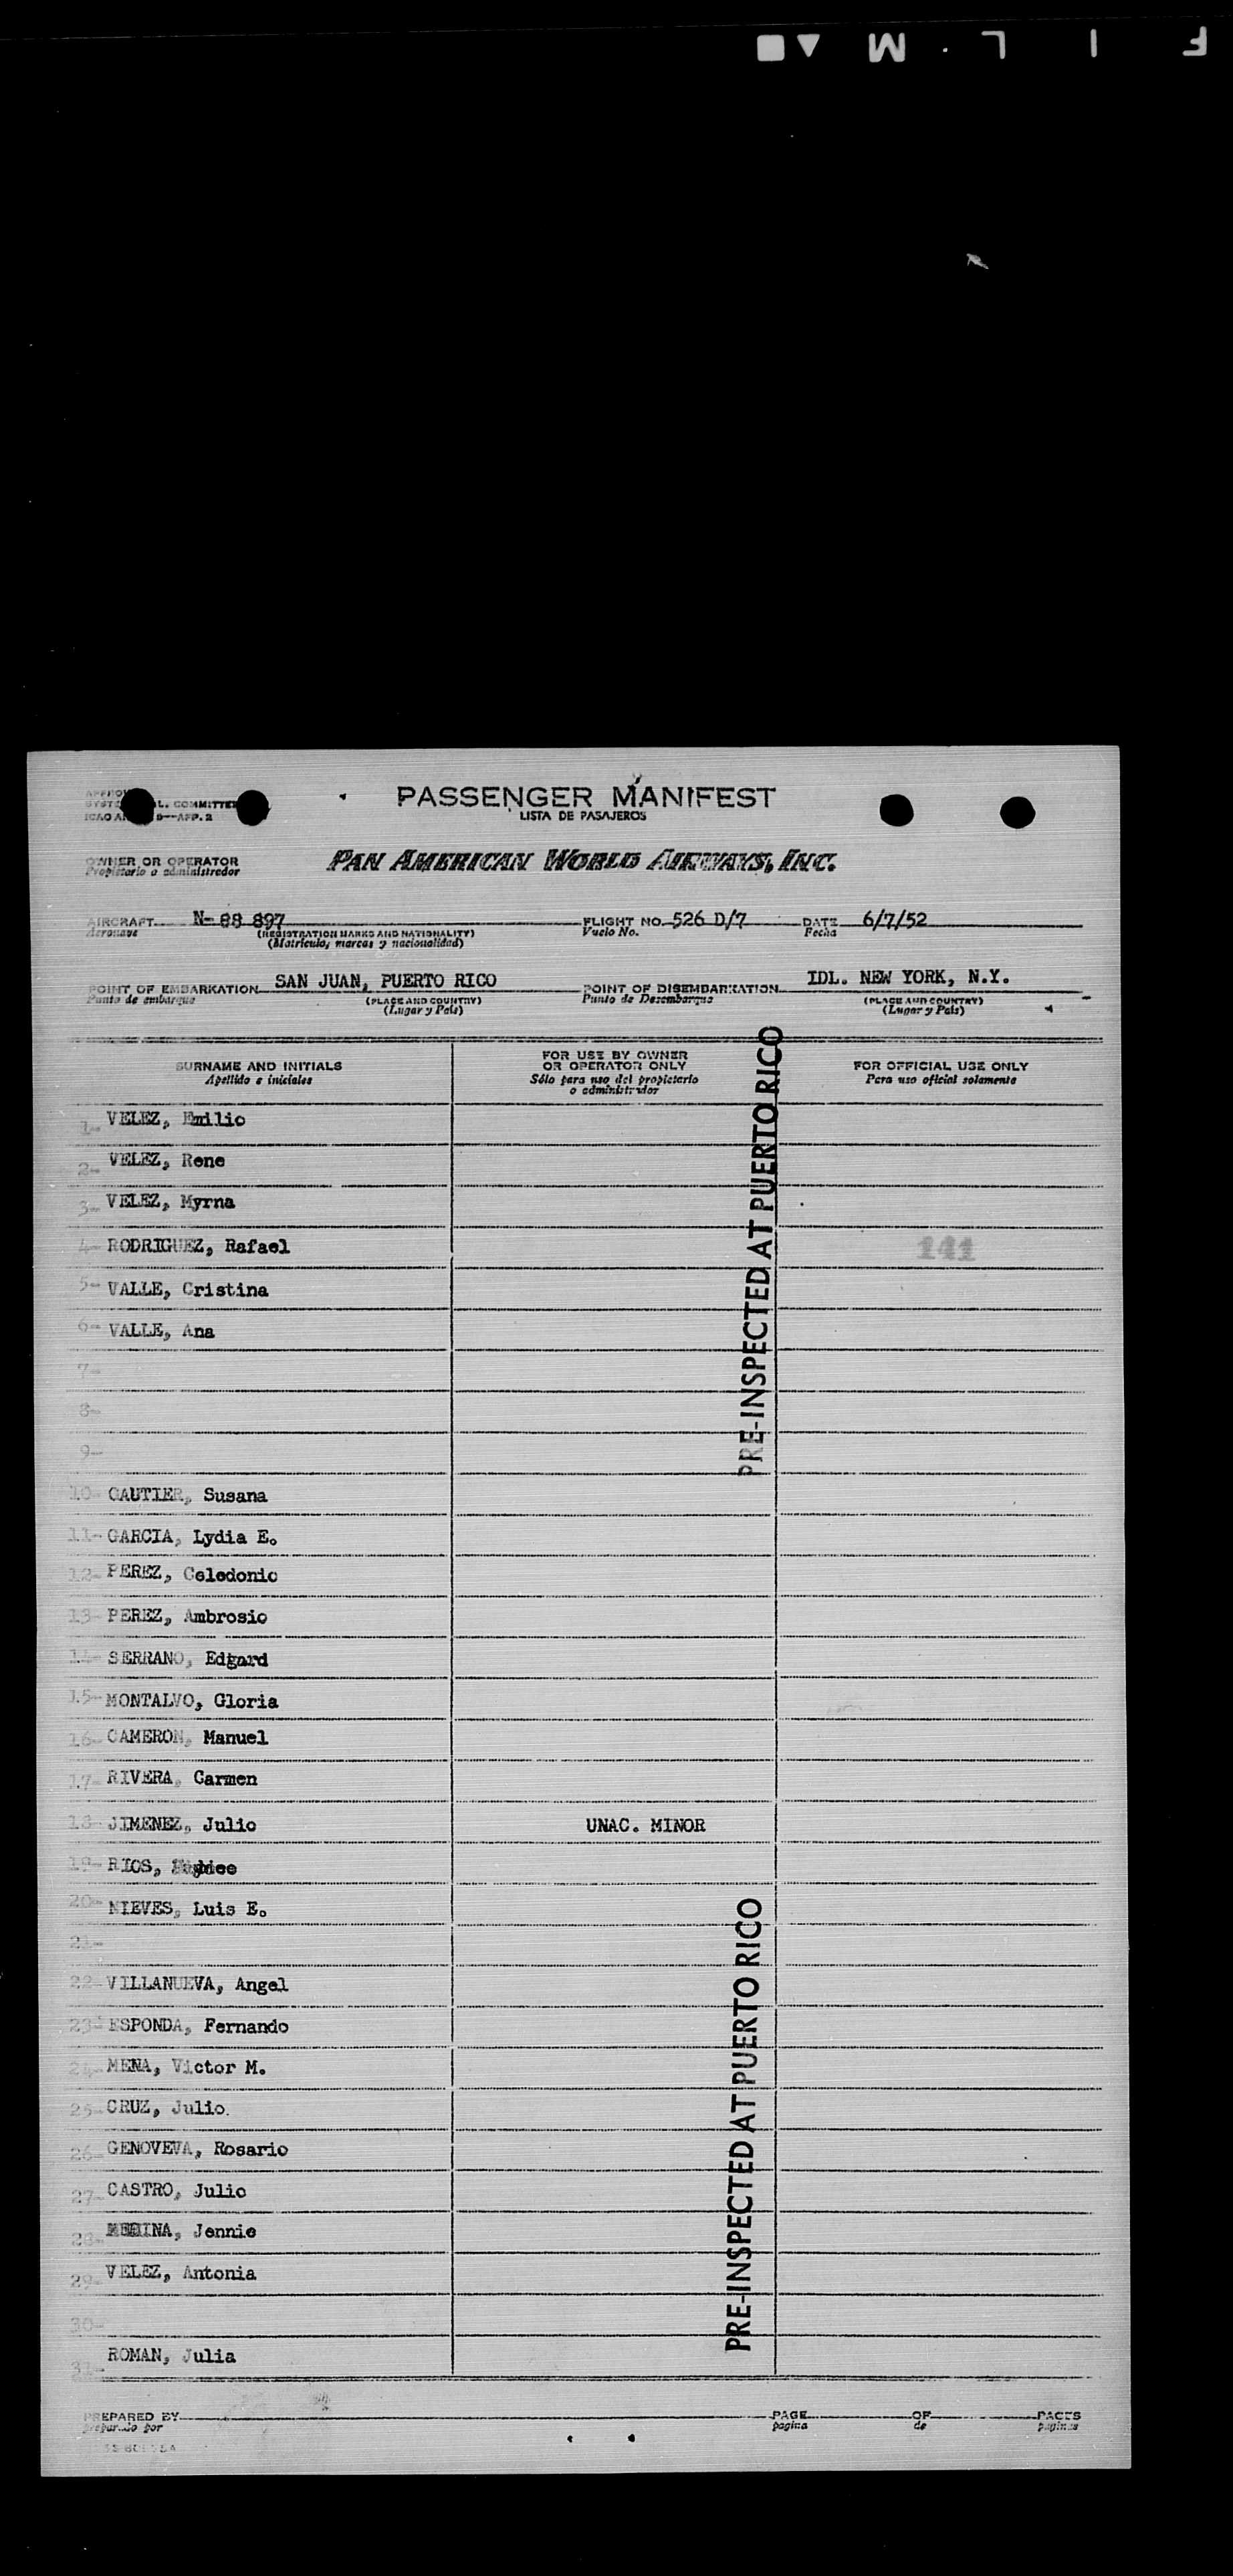 F I L M .
PASSENGER MANIFEST
LISTA DE PASAJEROS
L. COMMITTEE
ICAO 9—APP. 2
OWNER OR OPERATOR
Propietario o administrador
PAN AMERICAN WORLD AIRWAYS, INC.
AIRCRAFT N-88 897 FLIGHT NO. 526 D/7 DATE 6/7/52
Aeronave (REGISTRATION MARKS AND NATIONALITY) Vuelo No. Fecha
(Matricula, marcas y nacionalidad)
POINT OF EMBARKATION SAN JUAN, PUERTO RICO POINT OF DISEMBARKATION IDL. NEW YORK, N.Y.
Punto de embarque (PLACE AND COUNTRY) Punto de Desembarque (PLACE AND COUNTRY)
(Lugar y País) (Lugar y País)
SURNAME AND INITIALS
Apellido e iniciales
FOR USE BY OWNER
OR OPERATOR ONLY
Sólo para uso del propietario
o administrador
FOR OFFICIAL USE ONLY
Para uso oficial solamente
1- VELEZ, Emilio
2- VELEZ, Rene
3- VELEZ, Myrna
4- RODRIGUEZ, Rafael 141
5- VALLE, Cristina
6- VALLE, Ana
7-
8-
9-
10- GAUTIER, Susana
11- GARCIA, Lydia E.
12- PEREZ, Celedonio
13- PEREZ, Ambrosio
14- SERRANO, Edgard
15- MONTALVO, Gloria
16- CAMERON, Manuel
17- RIVERA, Carmen
18- JIMENEZ, Julio UNAC. MINOR
19- RIOS,
20- NIEVES, Luis E.
21-
22- VILLANUEVA, Angel
23- ESPONDA, Fernando
24- MENA, Victor M.
25- CRUZ, Julio
26- GENOVEVA, Rosario
27- CASTRO, Julio
28- MEDINA, Jennie
29- VELEZ, Antonia
30-
31- ROMAN, Julia
PRE-INSPECTED AT PUERTO RICO
PRE-INSPECTED AT PUERTO RICO
PREPARED BY PAGE OF PAGES
preparado por pagina de paginas